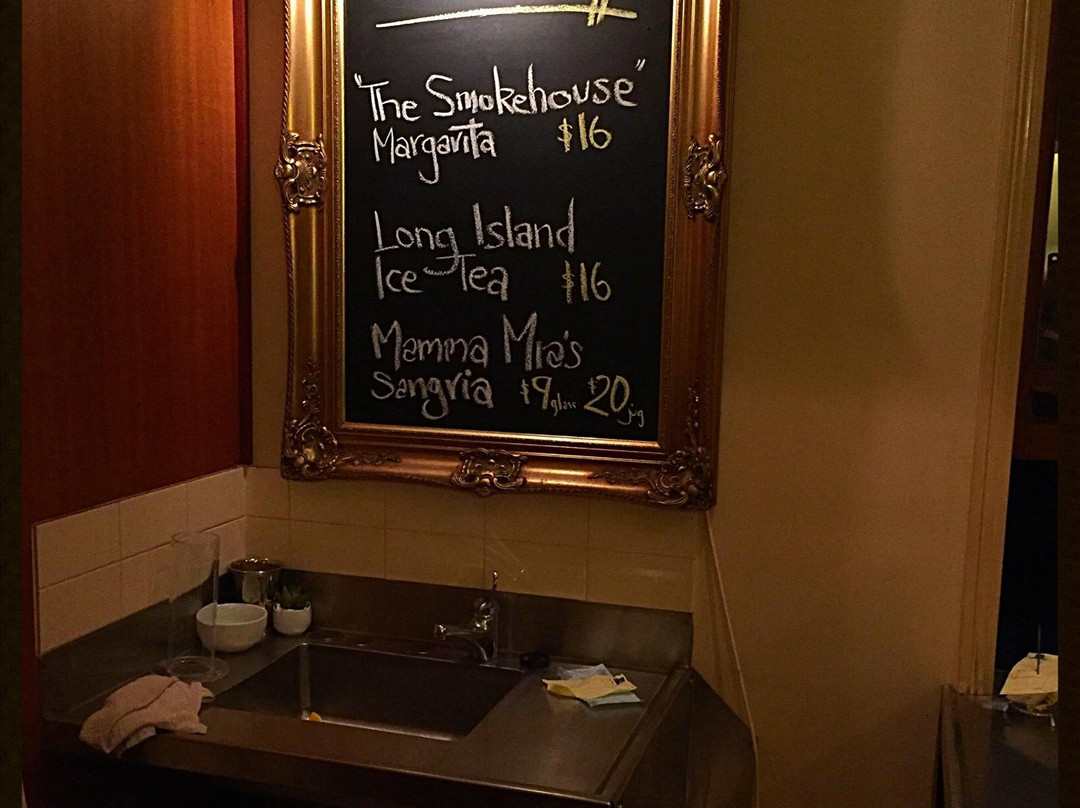 "The Smokehouse"
Margarita $16
Long Island
Ice Tea $16
Mamma Mia's
Sangria $9 glass $20 jug